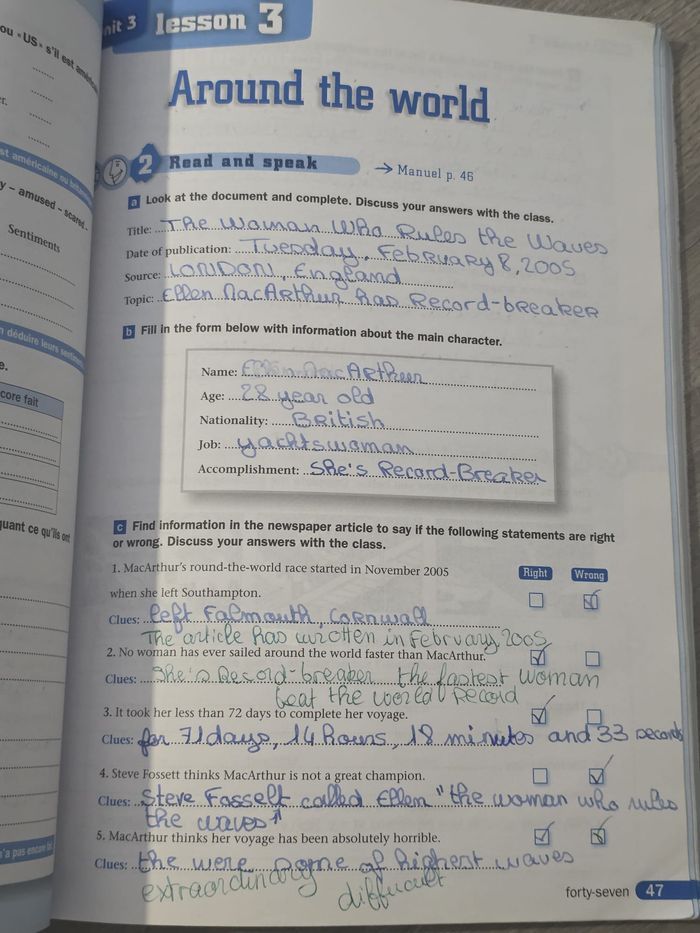 ou « US » s'il est américain
st américaine ou britan
y – amused – scared –
Sentiments
n déduire leurs sentim
e.
core fait
quant ce qu'ils ont
'a pas encore
nit 3 lesson 3
Around the world
2 Read and speak → Manuel p. 46
a Look at the document and complete. Discuss your answers with the class.
Title: The Woman Who Rules the Waves
Date of publication: Tuesday, February 8, 2005
Source: LONDON, England
Topic: Ellen MacArthur has Record-breaker
b Fill in the form below with information about the main character.
Name: Ellen MacArthur
Age: 28 year old
Nationality: British
Job: yachtswoman
Accomplishment: She's Record-Breaker
c Find information in the newspaper article to say if the following statements are right
or wrong. Discuss your answers with the class.
1. MacArthur's round-the-world race started in November 2005 Right Wrong
when she left Southampton.
Clues: left Falmouth, Cornwall
The article has wrotten in February, 2005
2. No woman has ever sailed around the world faster than MacArthur.
Clues: She's Record-breaker the fastest woman
beat the world Record
3. It took her less than 72 days to complete her voyage.
Clues: for 71 days, 14 hours, 18 minutes and 33 seconds
4. Steve Fossett thinks MacArthur is not a great champion.
Clues: Steve Fosselt called Ellen "the woman who rules
the waves"
5. MacArthur thinks her voyage has been absolutely horrible.
Clues: the were some of highest waves
extraordinary difficult
forty-seven 47